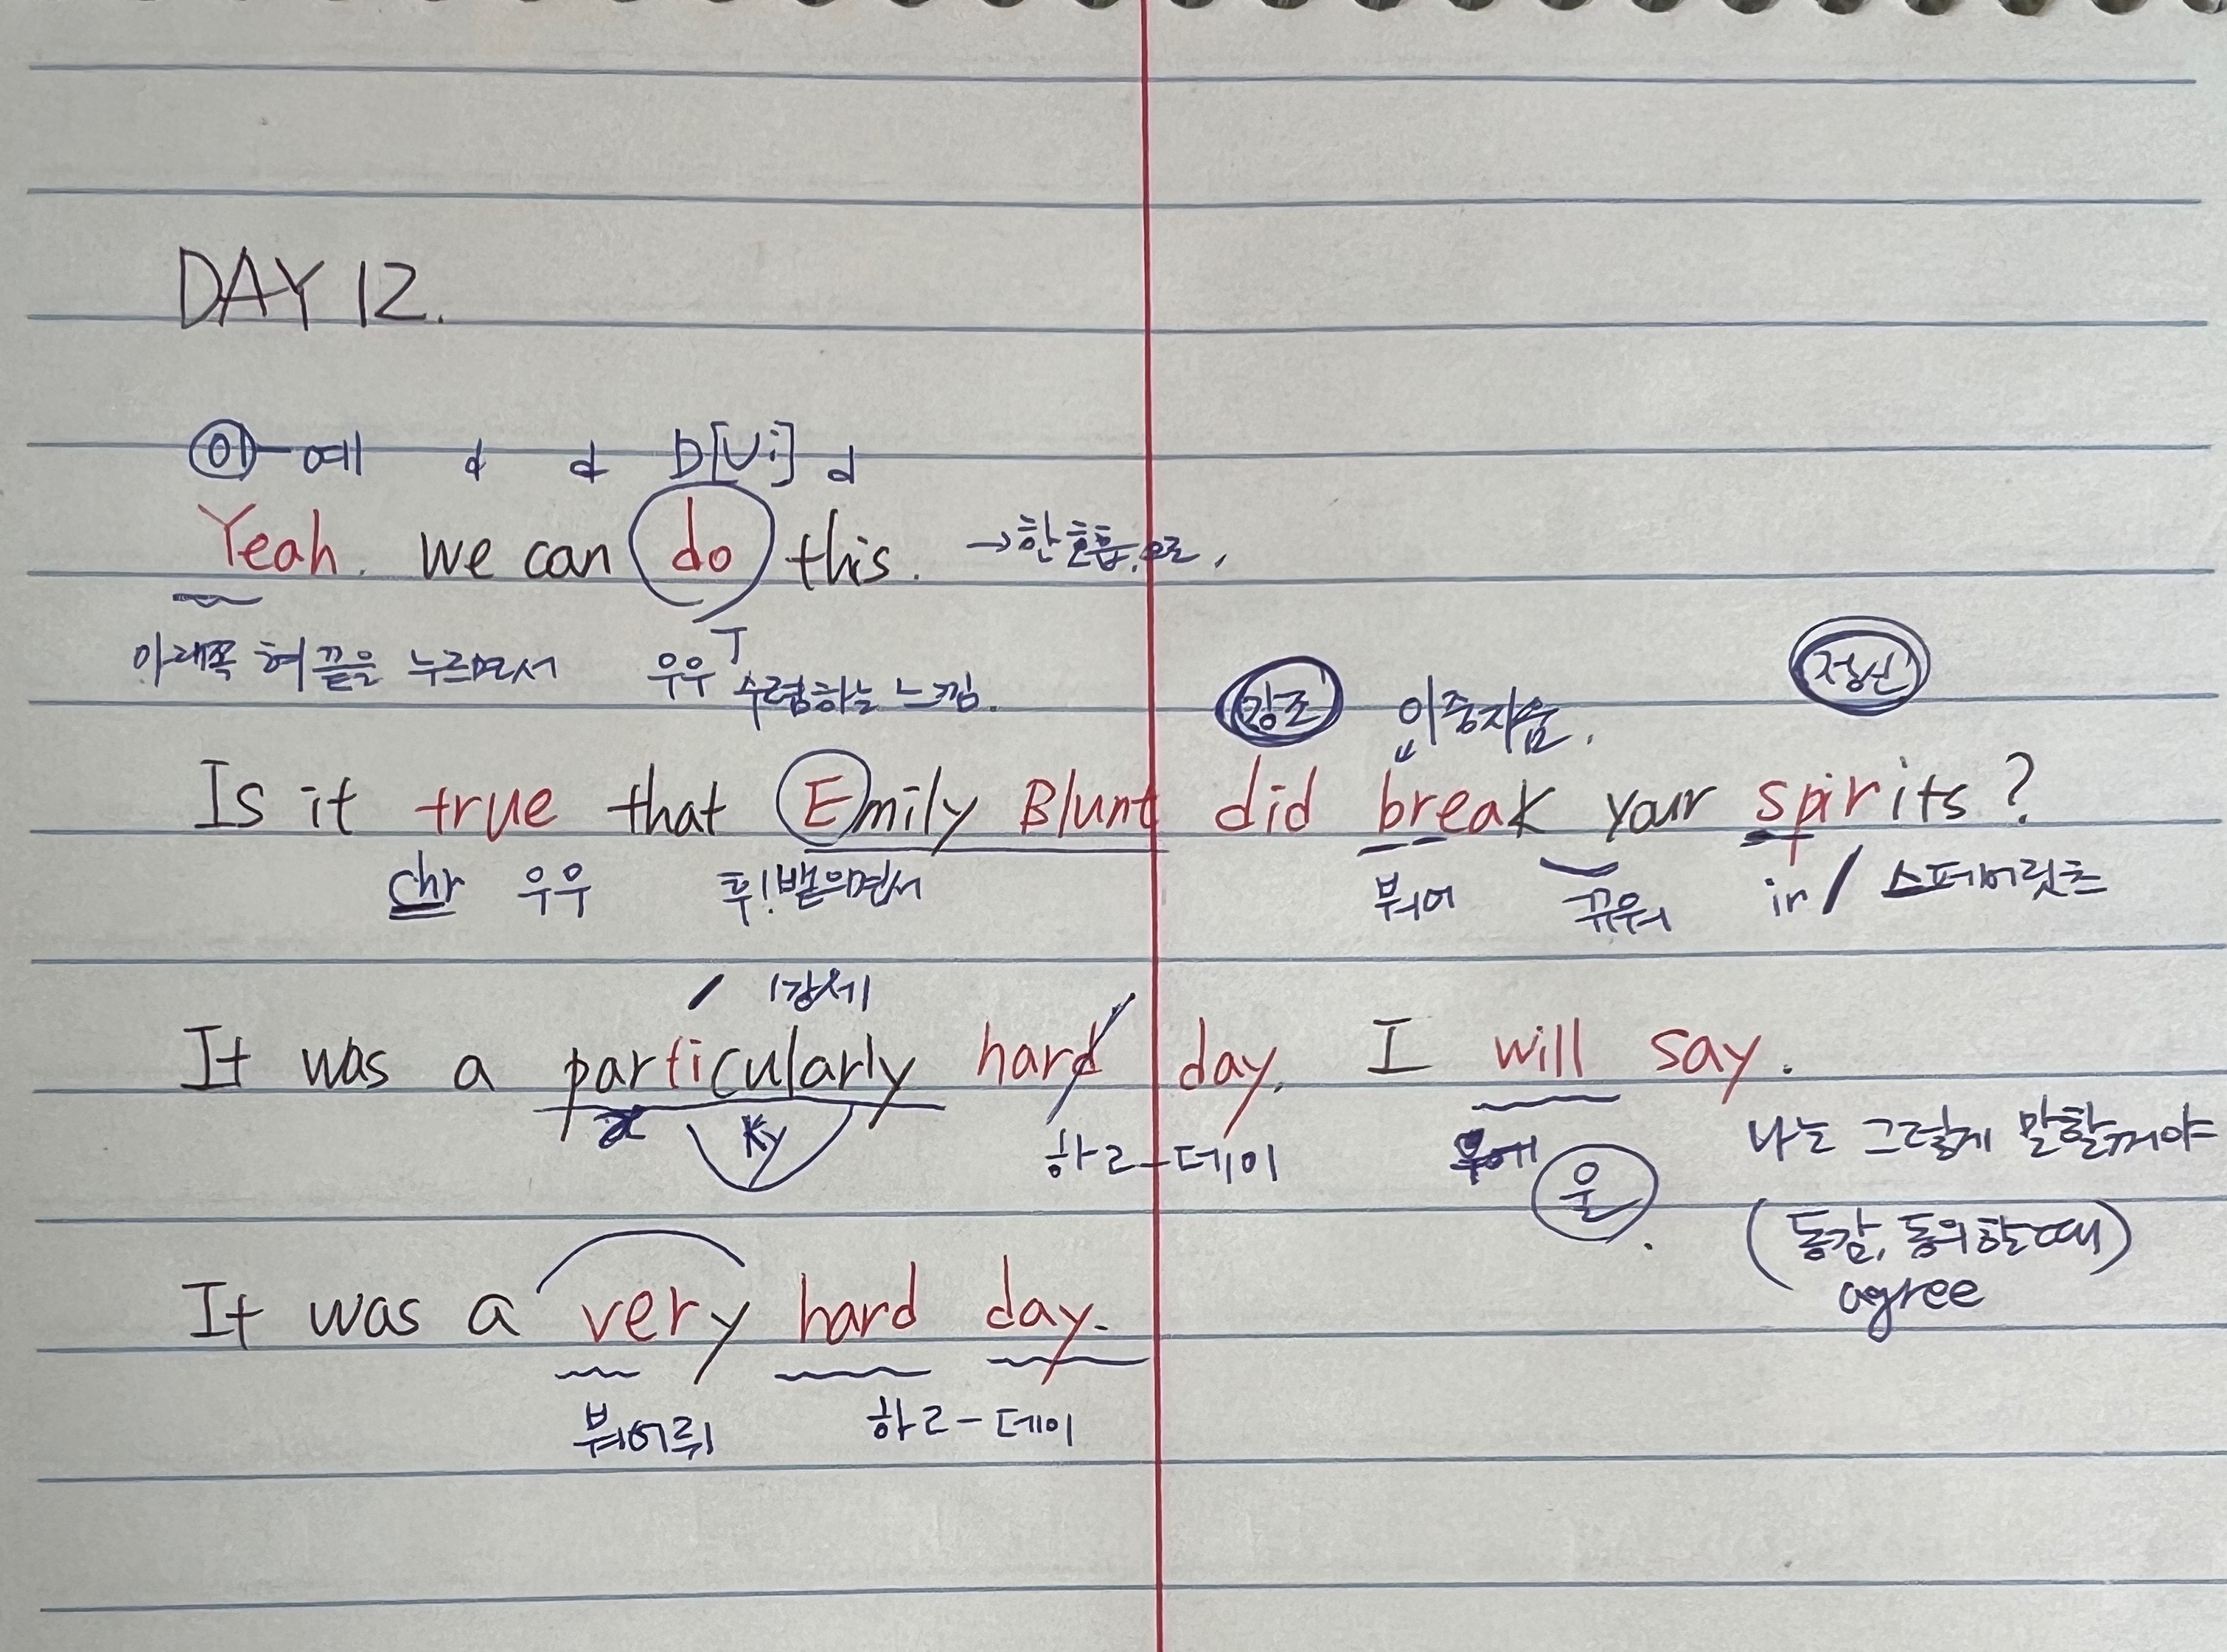 DAY 12.
이 예 d d D[Ui] d
Yeah. we can do this. →한 호흡.으로,
아래쪽 혀끝을 누르면서 우우 수렴하는 느낌.
강조 이중자음. 정신
Is it true that Emily Blunt did break your spirits?
chr 우우 후!뱉으면서 붜어 뀨워 in / 스피어릿츠
1강세
It was a particularly hard day. I will say.
Ky 하ㄹ-데이 우에 울. 나는 그렇게 말할꺼야
(동감, 동의할때)
agree
It was a very hard day.
붜어뤼 하ㄹ-데이